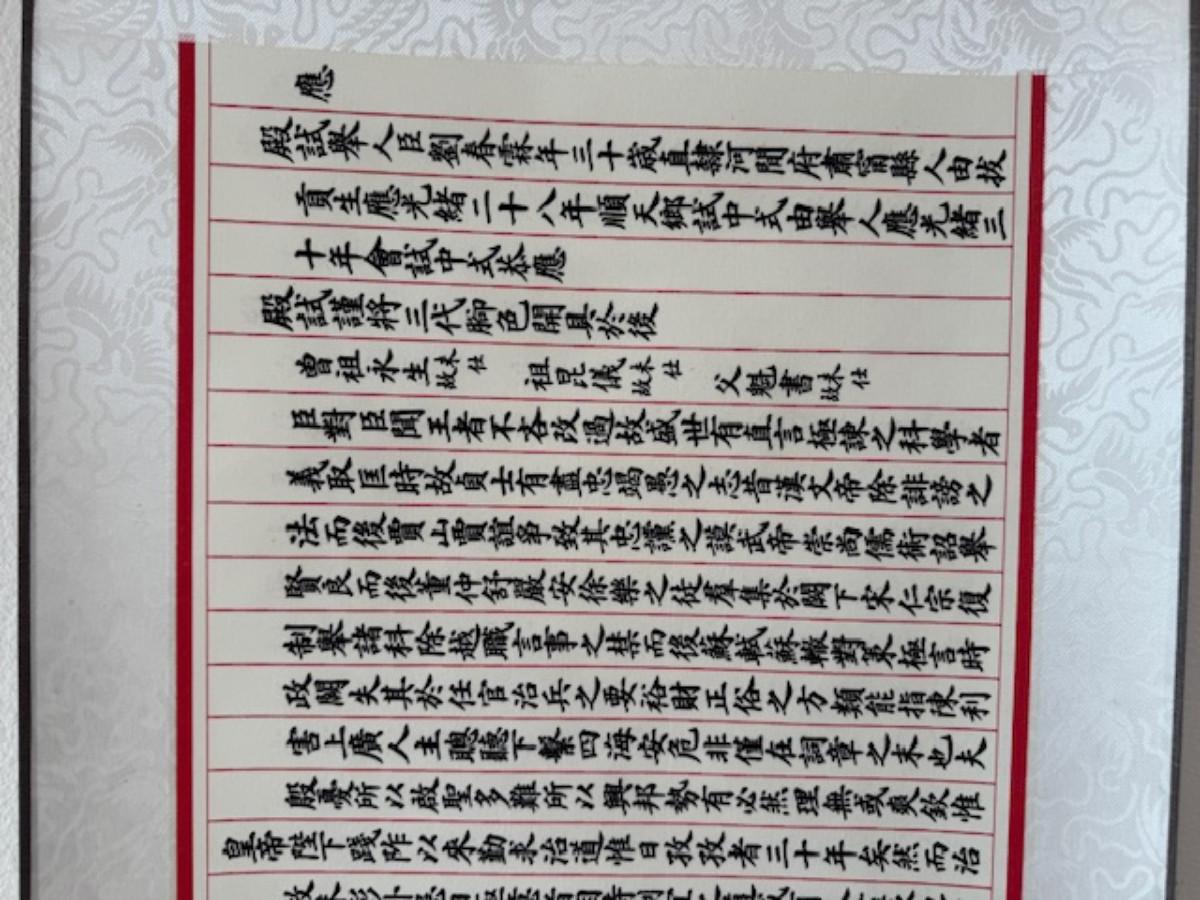 應
殿試舉人臣劉春霖年三十歲直隸河間府肅甯縣人由拔
貢生應光緒二十八年順天鄉試中式由舉人應光緒三
十年會試中式恭應
殿試謹將三代腳色開具於後
曾祖永生故未仕 祖昆儀故未仕 父魁書故未仕
臣對臣聞王者不吝改過故盛世有直言極諫之科學者
義取匡時故貞士有盡忠竭愚之志昔漢文帝除誹謗之
法而後賈山賈誼爭致其忠讜之謨武帝崇尚儒術詔舉
賢良而後董仲舒嚴安徐樂之徒羣集於闕下宋仁宗復
制舉諸科除越職言事之禁而後蘇軾蘇轍對策極言時
政闕失其於任官治兵之要裕財正俗之方類能指陳利
害上廣人主聰聽下繫四海安危非僅在詞章之末也夫
殷憂所以啟聖多難所以興邦勢有必然理無或爽欽惟
皇帝陛下踐阼以來勤求治道惟日孜孜者三十年矣然而治